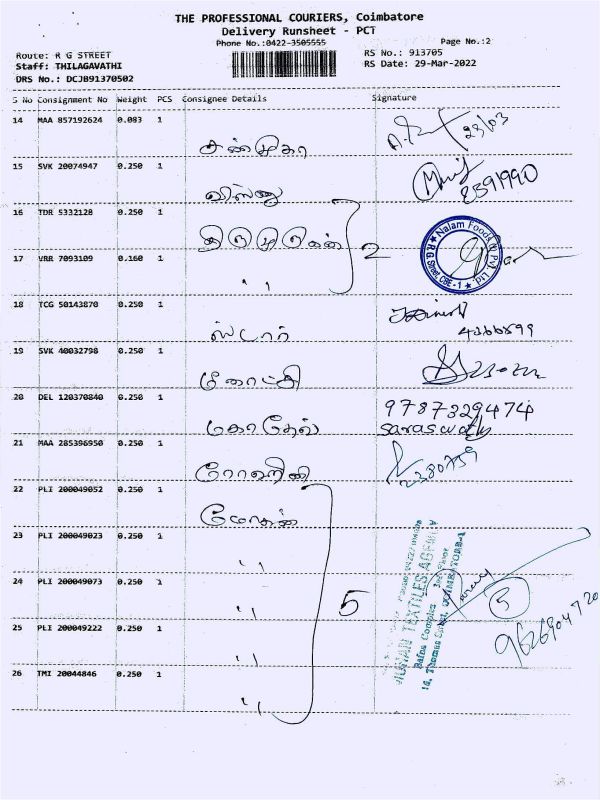 THE PROFESSIONAL COURIERS, Coimbatore
Delivery Runsheet - PCT
Phone No.:0422-3505555 Page No.:2
Route: R G STREET RS No.: 913705
Staff: THILAGAVATHI RS Date: 29-Mar-2022
DRS No.: DCJB91370502
S No Consignment No Weight PCS Consignee Details Signature
14 MAA 857192624 0.083 1
சண்முகா 29/03
15 SVK 20074947 0.250 1
விஸ்ணு 8591990
16 TDR 5332128 0.250 1
திருமுருகன் 2
Nalam Foods (I) Pvt Ltd
R G Street, CBE-1
17 VRR 7093109 0.160 1
,,
18 TCG 50143870 0.250 1
ஸ்டார் 4366899
19 SVK 40032798 0.250 1
20 DEL 120370840 0.250 1
9787329474
Saraswathy
21 MAA 285396950 0.250 1
ரோஹினி 2380759
22 PLI 200049052 0.250 1
மோகன்
23 PLI 200049023 0.250 1
,,
24 PLI 200049073 0.250 1
,, 5 5
25 PLI 200049222 0.250 1
,, 9626904720
26 TMI 20044846 0.250 1
,,
TEXTILES AGENCY
16, Thomas Street, COIMBATORE-1